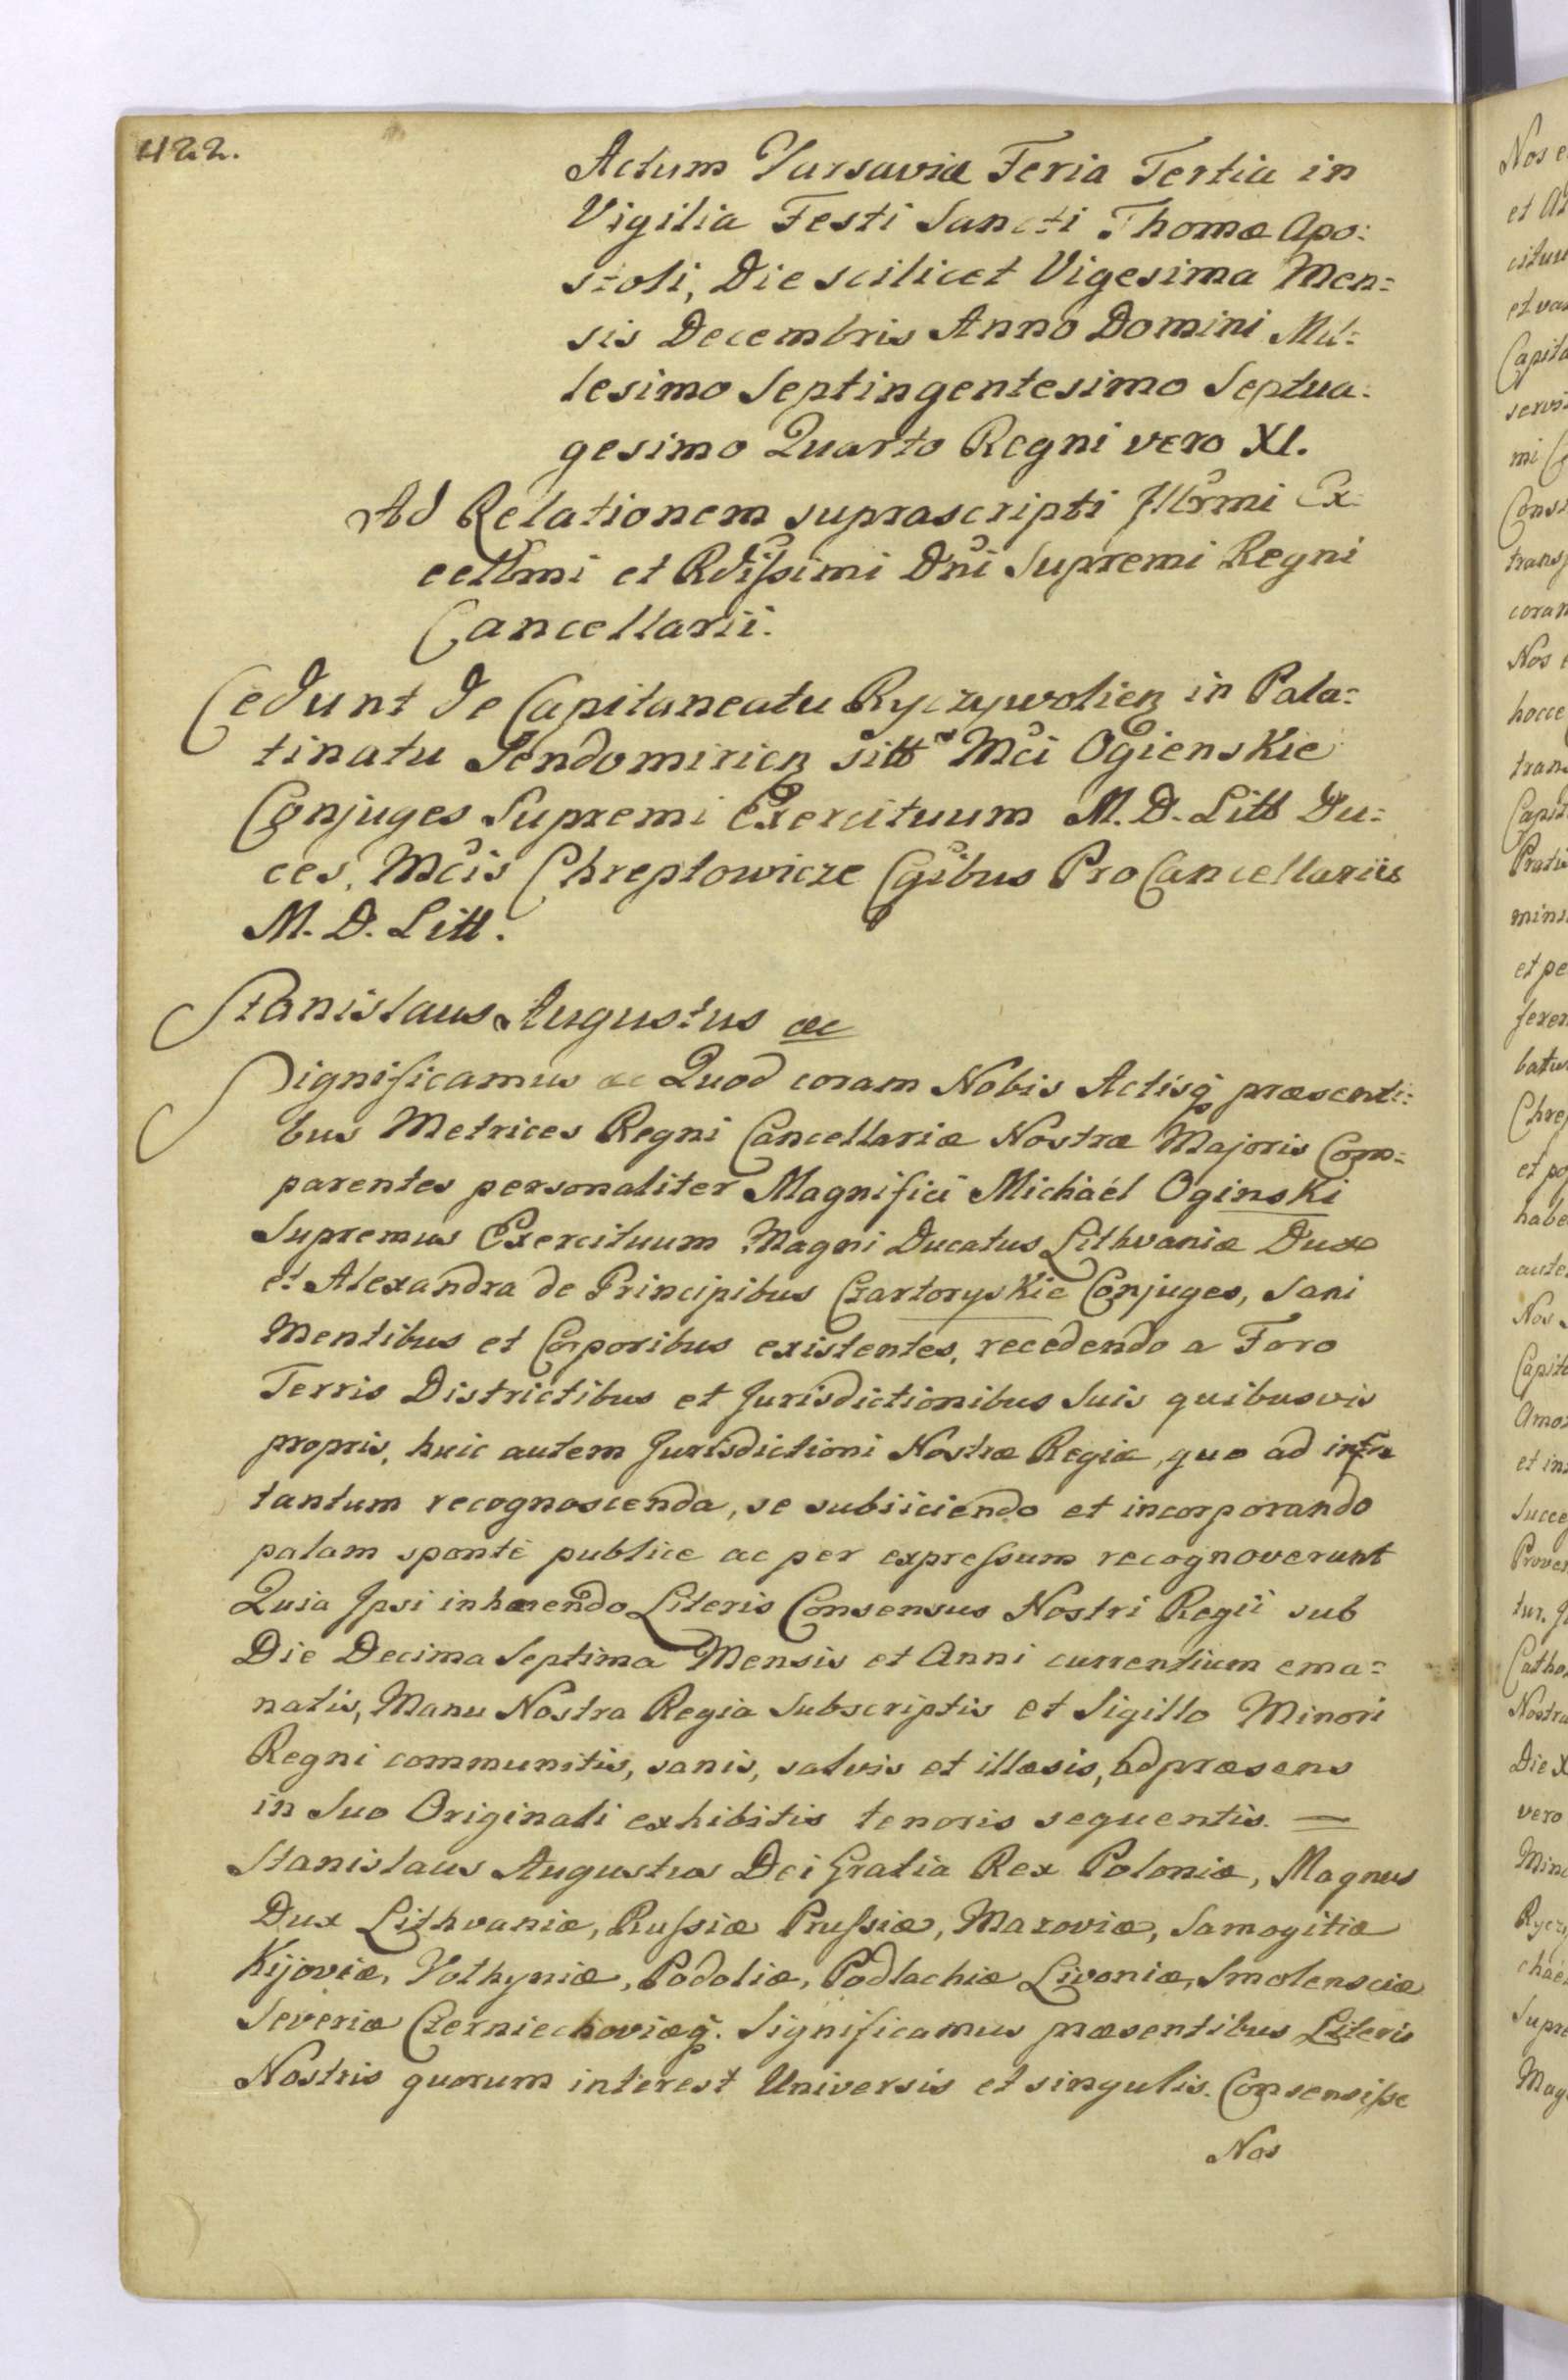 422.
Actum Varsaviæ Feria Tertia in
Vigilia Festi Sancti Thomæ Apo:
stoli, Die scilicet Vigesima Men:
sis Decembris Anno Domini Mil:
lesimo Septingentesimo Septua:
gesimo Quarto Regni vero XI.
Ad Relationem suprascripti Illrmi Ex:
cellmi et Rdissimi Dni Supremi Regni
Cancellarii.
Cedunt de Capitaneatu Ryczywolien in Pala:
tinatu Sendomirien sitto Mci Ogienskie
Conjuges Supremi Exercituum M. D. Litt Du:
ces, Mcis Chreptowicze Cgibus Pro Cancellariis
M. D. Litt.
Stanislaus Augustus &c
Significamus &c Quod coram Nobis Actisq præsenti:
bus Metrices Regni Cancellariæ Nostræ Majoris Com:
parentes personaliter Magnifici Michaél Oginski
Supremus Exercituum Magni Ducatus Lithvaniæ Dux
et Alexandra de Principibus Czartoryskie Conjuges, Sani
Mentibus et Corporibus existentes, recedendo a Foro
Terris Districtibus et Jurisdictionibus Suis quibusvis
propris, huic autem Jurisdictioni Nostræ Regiæ, quo ad infra
tantum recognoscenda, se subiiciendo et incorporando
palam sponte publice ac per expressum recognoverunt
Quia Ipsi inhærendo Literis Consensus Nostri Regii sub
Die Decima Septima Mensis et Anni currentium ema:
natis, Manu Nostra Regia Subscriptis et Sigillo Minori
Regni communitis, sanis, salvis et illæsis, ad præsens
in Suo Originali exhibitis tenoris sequentis. —
Stanislaus Augustus Dei Gratia Rex Poloniæ, Magnus
Dux Lithvaniæ, Russiæ Prussiæ, Mazoviæ, Samogitiæ
Kijoviæ, Volhyniæ, Podoliæ, Podlachiæ Livoniæ, Smolensciæ
Severiæ Czerniechoviæq. Significamus præsentibus Literis
Nostris quorum interest Universis et singulis. Consensisse
Nos